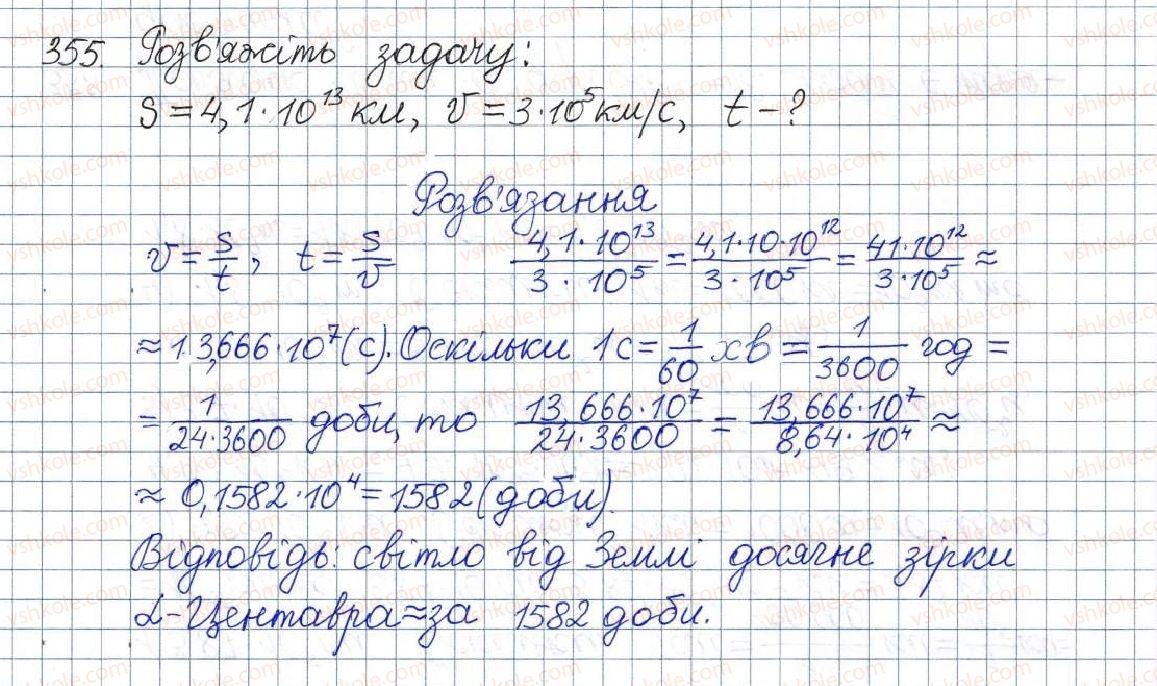 355. Розв'яжіть задачу:
S = 4,1·10¹³ км, v = 3·10⁵ км/с, t – ?
Розв'язання
v = s/t, t = s/v (4,1·10¹³)/(3·10⁵) = (4,1·10·10¹²)/(3·10⁵) = (41·10¹²)/(3·10⁵) ≈
≈ 13,666·10⁷ (с). Оскільки 1с = 1/60 хв = 1/3600 год =
= 1/(24·3600) доби, то (13,666·10⁷)/(24·3600) = (13,666·10⁷)/(8,64·10⁴) ≈
≈ 0,1582·10⁴ = 1582 (доби).
Відповідь: світло від Землі досягне зірки
α-Центавра ≈ за 1582 доби.